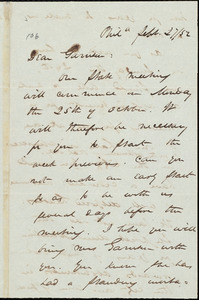 106
Phila Sept. 27/52
Dear Garrison
Our State meeting
will commence on Monday
the 25th of October. It
will therefore be necessary
for you to start the
week previous. Can you
not make an early start
so as to be with us
several days before the
meeting. I hope you will
bring Mrs Garrison with
you. You know she has
had a standing invita-